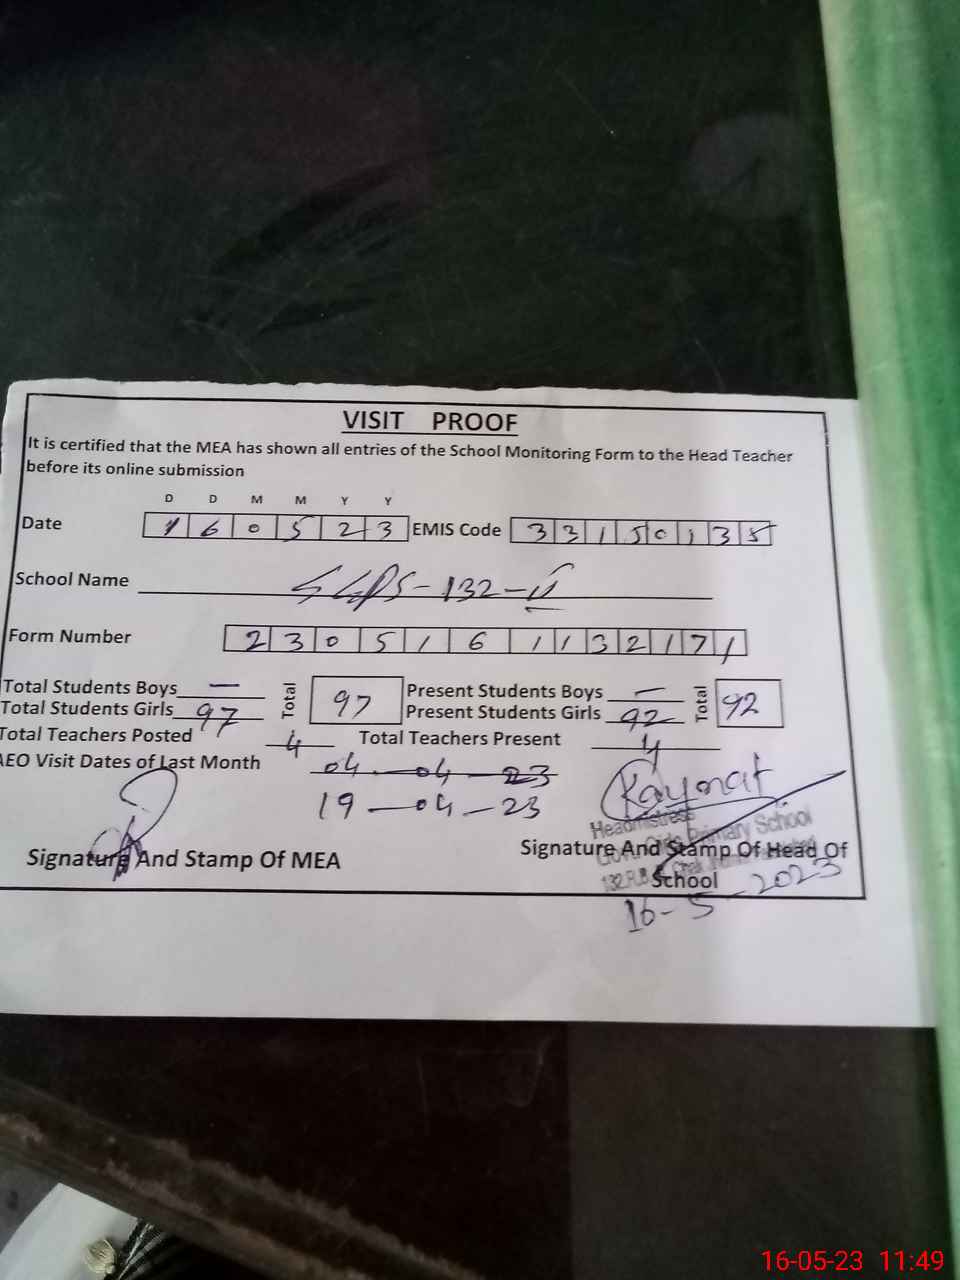 VISIT PROOF
It is certified that the MEA has shown all entries of the School Monitoring Form to the Head Teacher
before its online submission
D D M M Y Y
Date 1 6 0 5 2 3 EMIS Code 3 3 1 5 0 1 3 5
School Name GGPS-132-II
Form Number 2 3 0 5 1 6 1 1 3 2 1 7 1
Total Students Boys — Total 97 Present Students Boys — Total 92
Total Students Girls 97 Present Students Girls 92
Total Teachers Posted 4 Total Teachers Present 4
AEO Visit Dates of Last Month 04-04-23
19-04-23
Kaynat
Headmistress
Govt. Girls Primary School
132 R.B Chak
Signature And Stamp Of MEA Signature And Stamp Of Head Of
School
16-5-2023
16-05-23 11:49